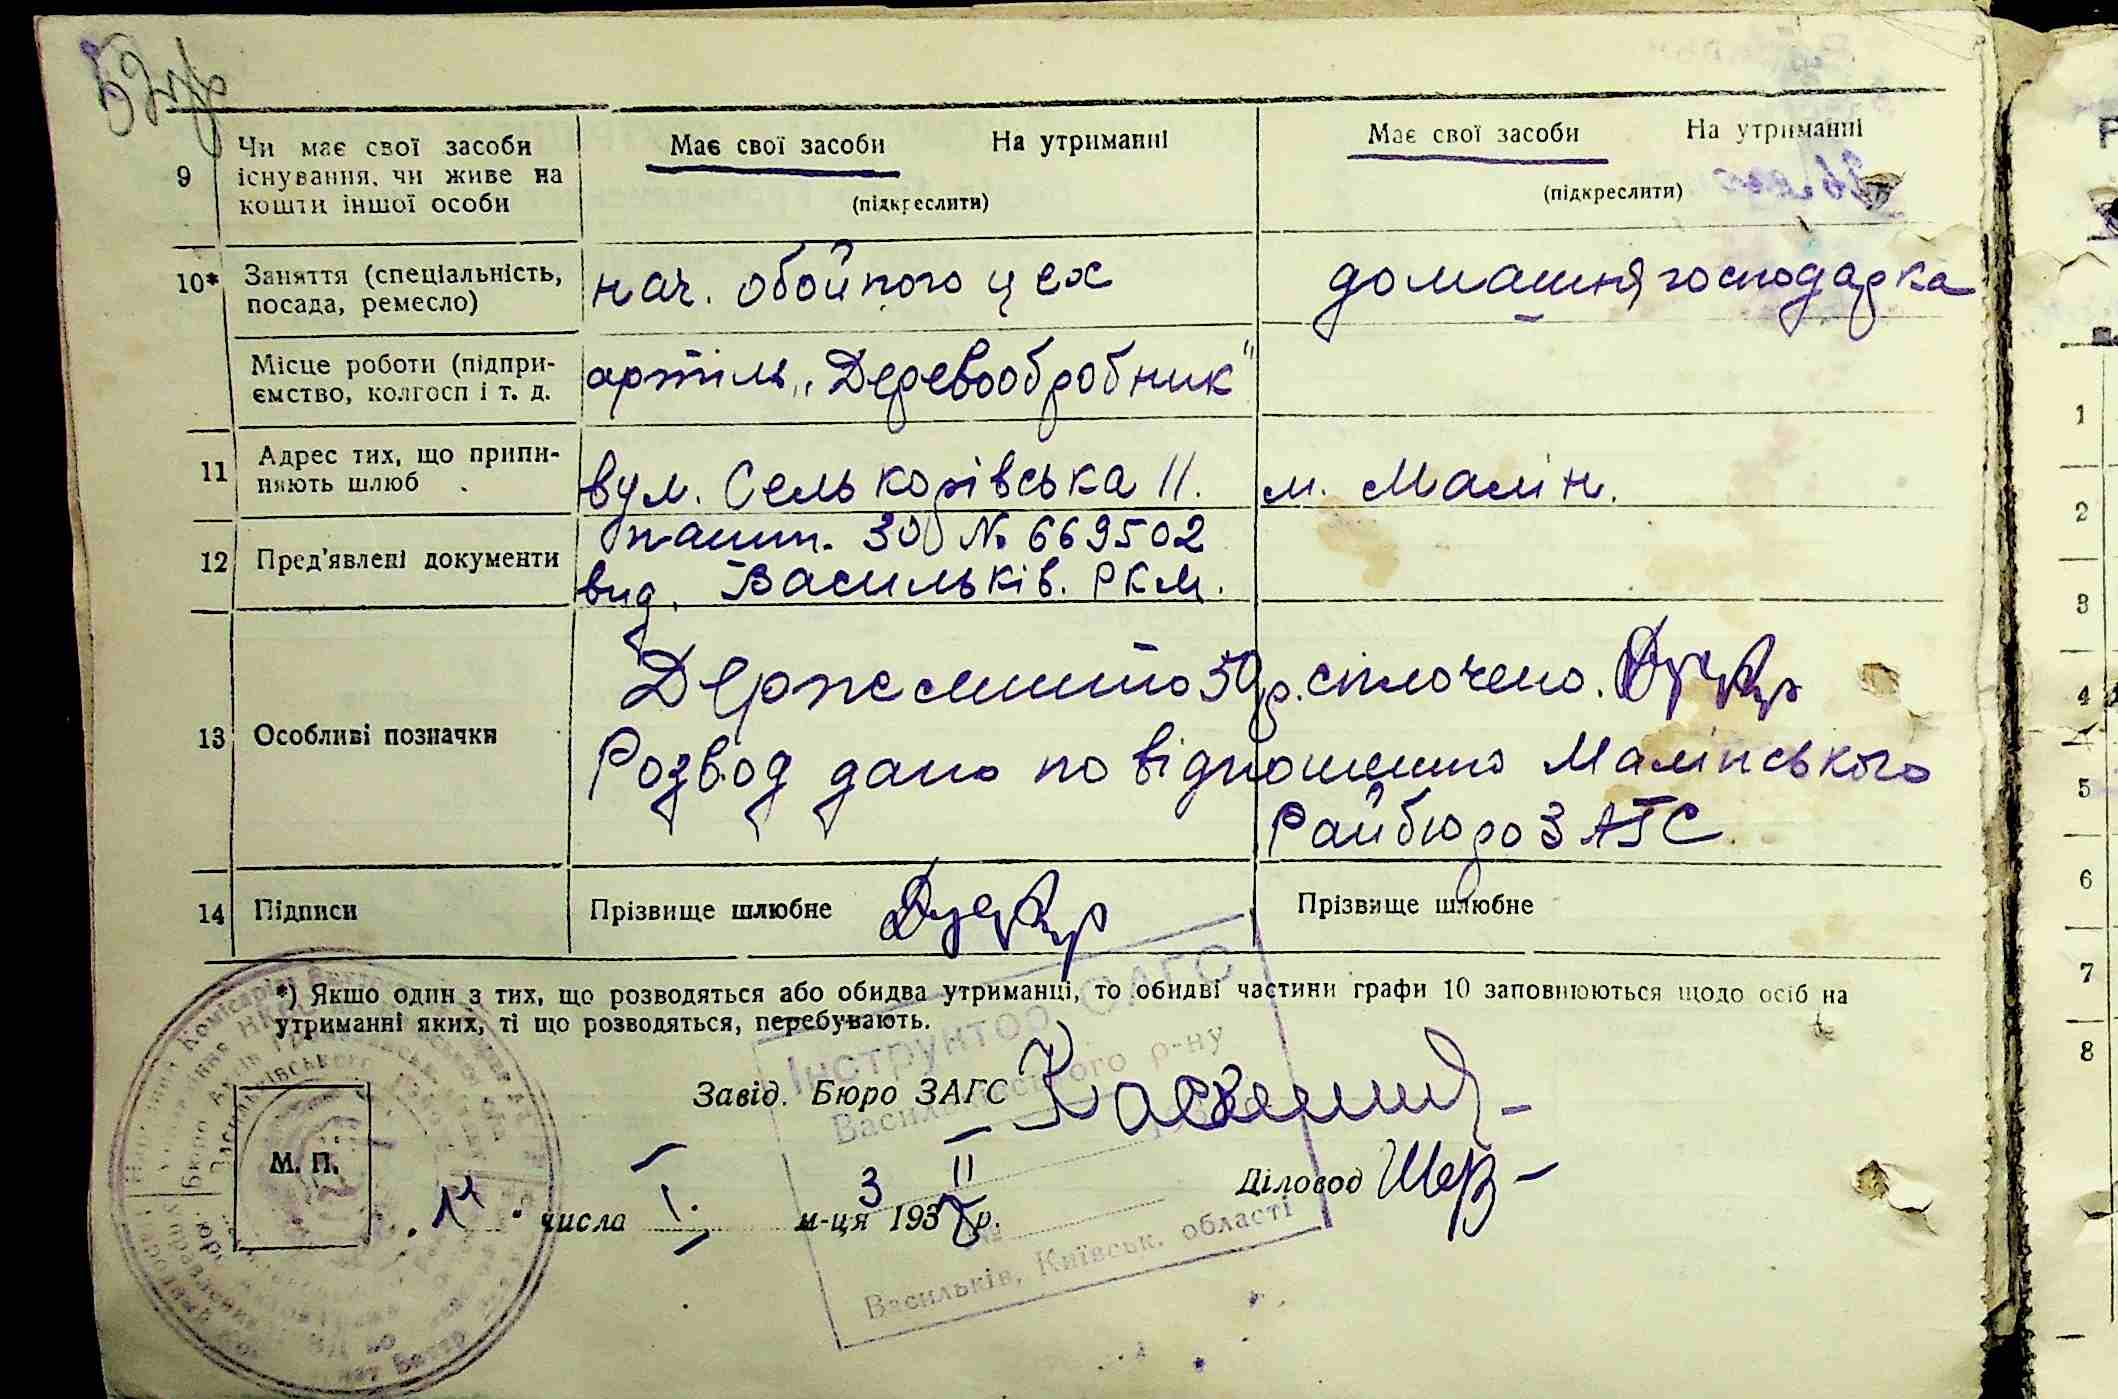 9 Чи має свої засоби існування, чи живе на кошти іншої особи
Має свої засоби На утриманні
(підкреслити)
Має свої засоби На утриманні
(підкреслити)
10* Заняття (спеціальність, посада, ремесло)
нач. обойного цех
домашня господарка
Місце роботи (підприємство, колгосп і т. д.
артіль „Деревообробник"
11 Адрес тих, що припиняють шлюб
вул. Селькорівська 11.
м. Малін.
12 Пред'явлені документи
пашп. № 669502
вид. Васильків. РКМ.
13 Особливі позначки
Держмито 50 р. сплочено.
Розвод дано по відношению Малінського
Райбюро ЗАГС
14 Підписи
Прізвище шлюбне
Прізвище шлюбне
*) Якщо один з тих, що розводяться або обидва утриманці, то обидві частини графи 10 заповнюються щодо осіб на
утриманні яких, ті що розводяться, перебувають.
Інструктор ЗАГС
Васильківського р-ну
Завід. Бюро ЗАГС
М. П.
числа м-ця 193 р.
Діловод
Васильків, Київськ. області
1
2
3
4
5
6
7
8